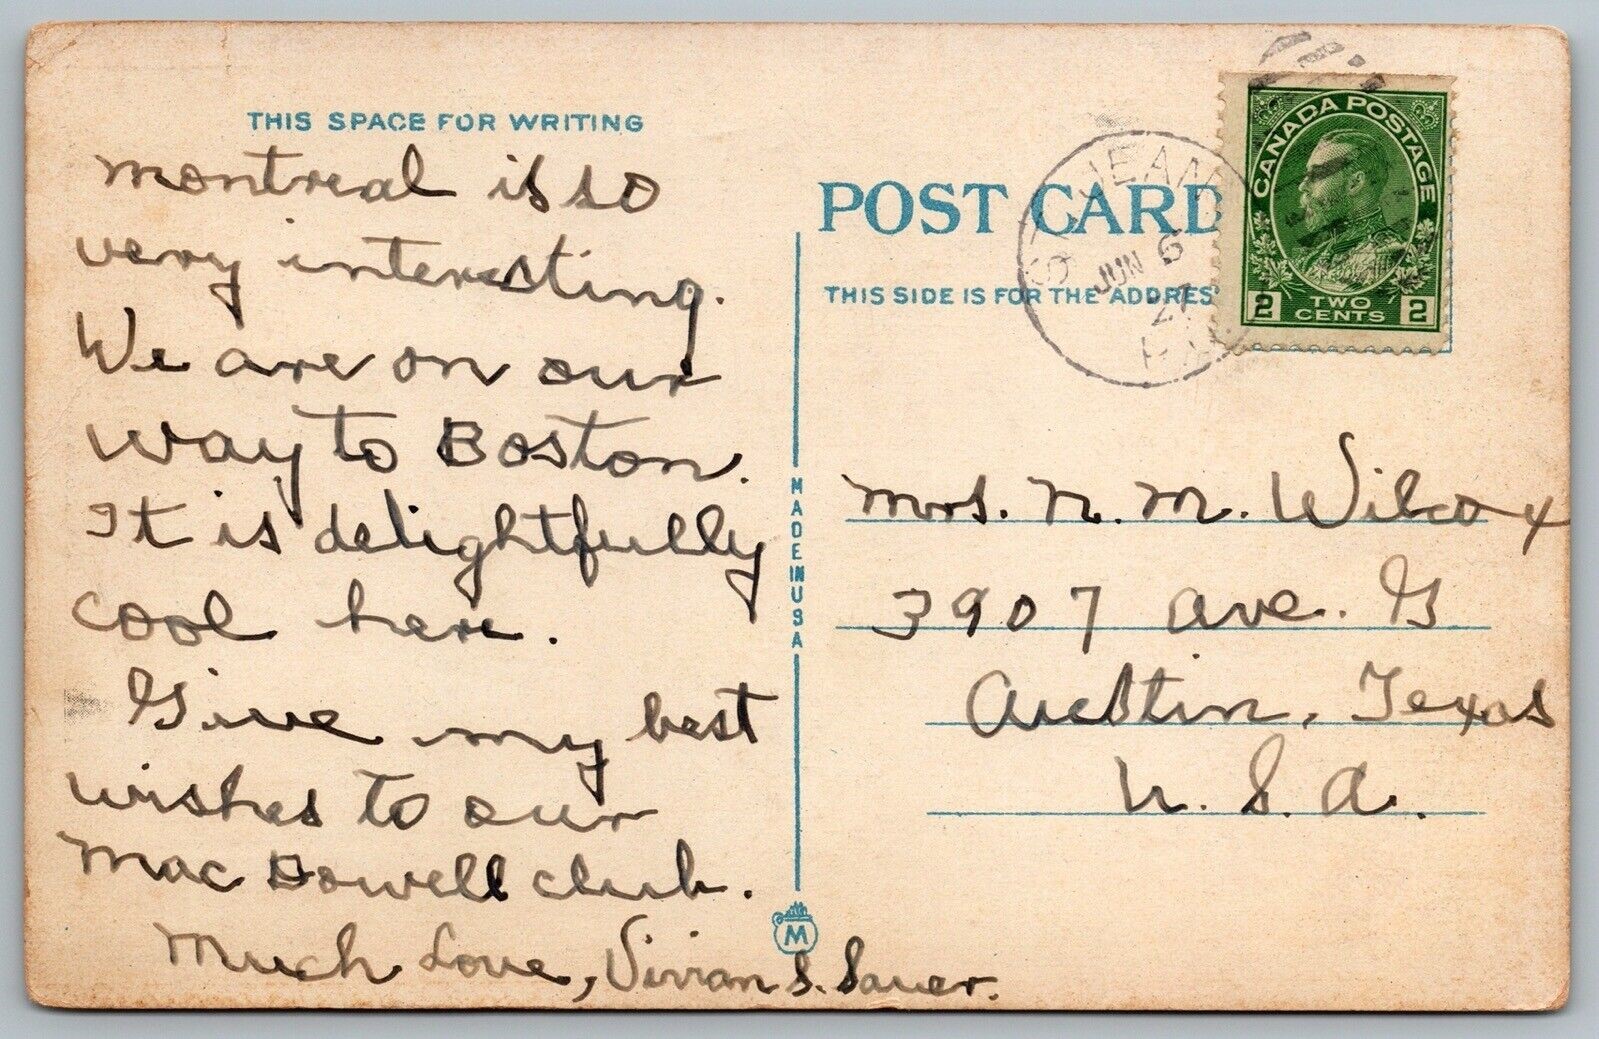 THIS SPACE FOR WRITING
Montreal is so
very interesting.
We are on our
way to Boston.
It is delightfully
cool here.
Give my best
wishes to our
Mac Dowell club.
Much Love, Vivian S. Sauer.
MADE IN USA
M
POST CARD
THIS SIDE IS FOR THE ADDRES
ST. JEAN
JUN 6
27
CANADA POSTAGE
2 TWO CENTS 2
Mrs. N. M. Wilcox
3907 Ave. G
Austin, Texas
U. S. A.